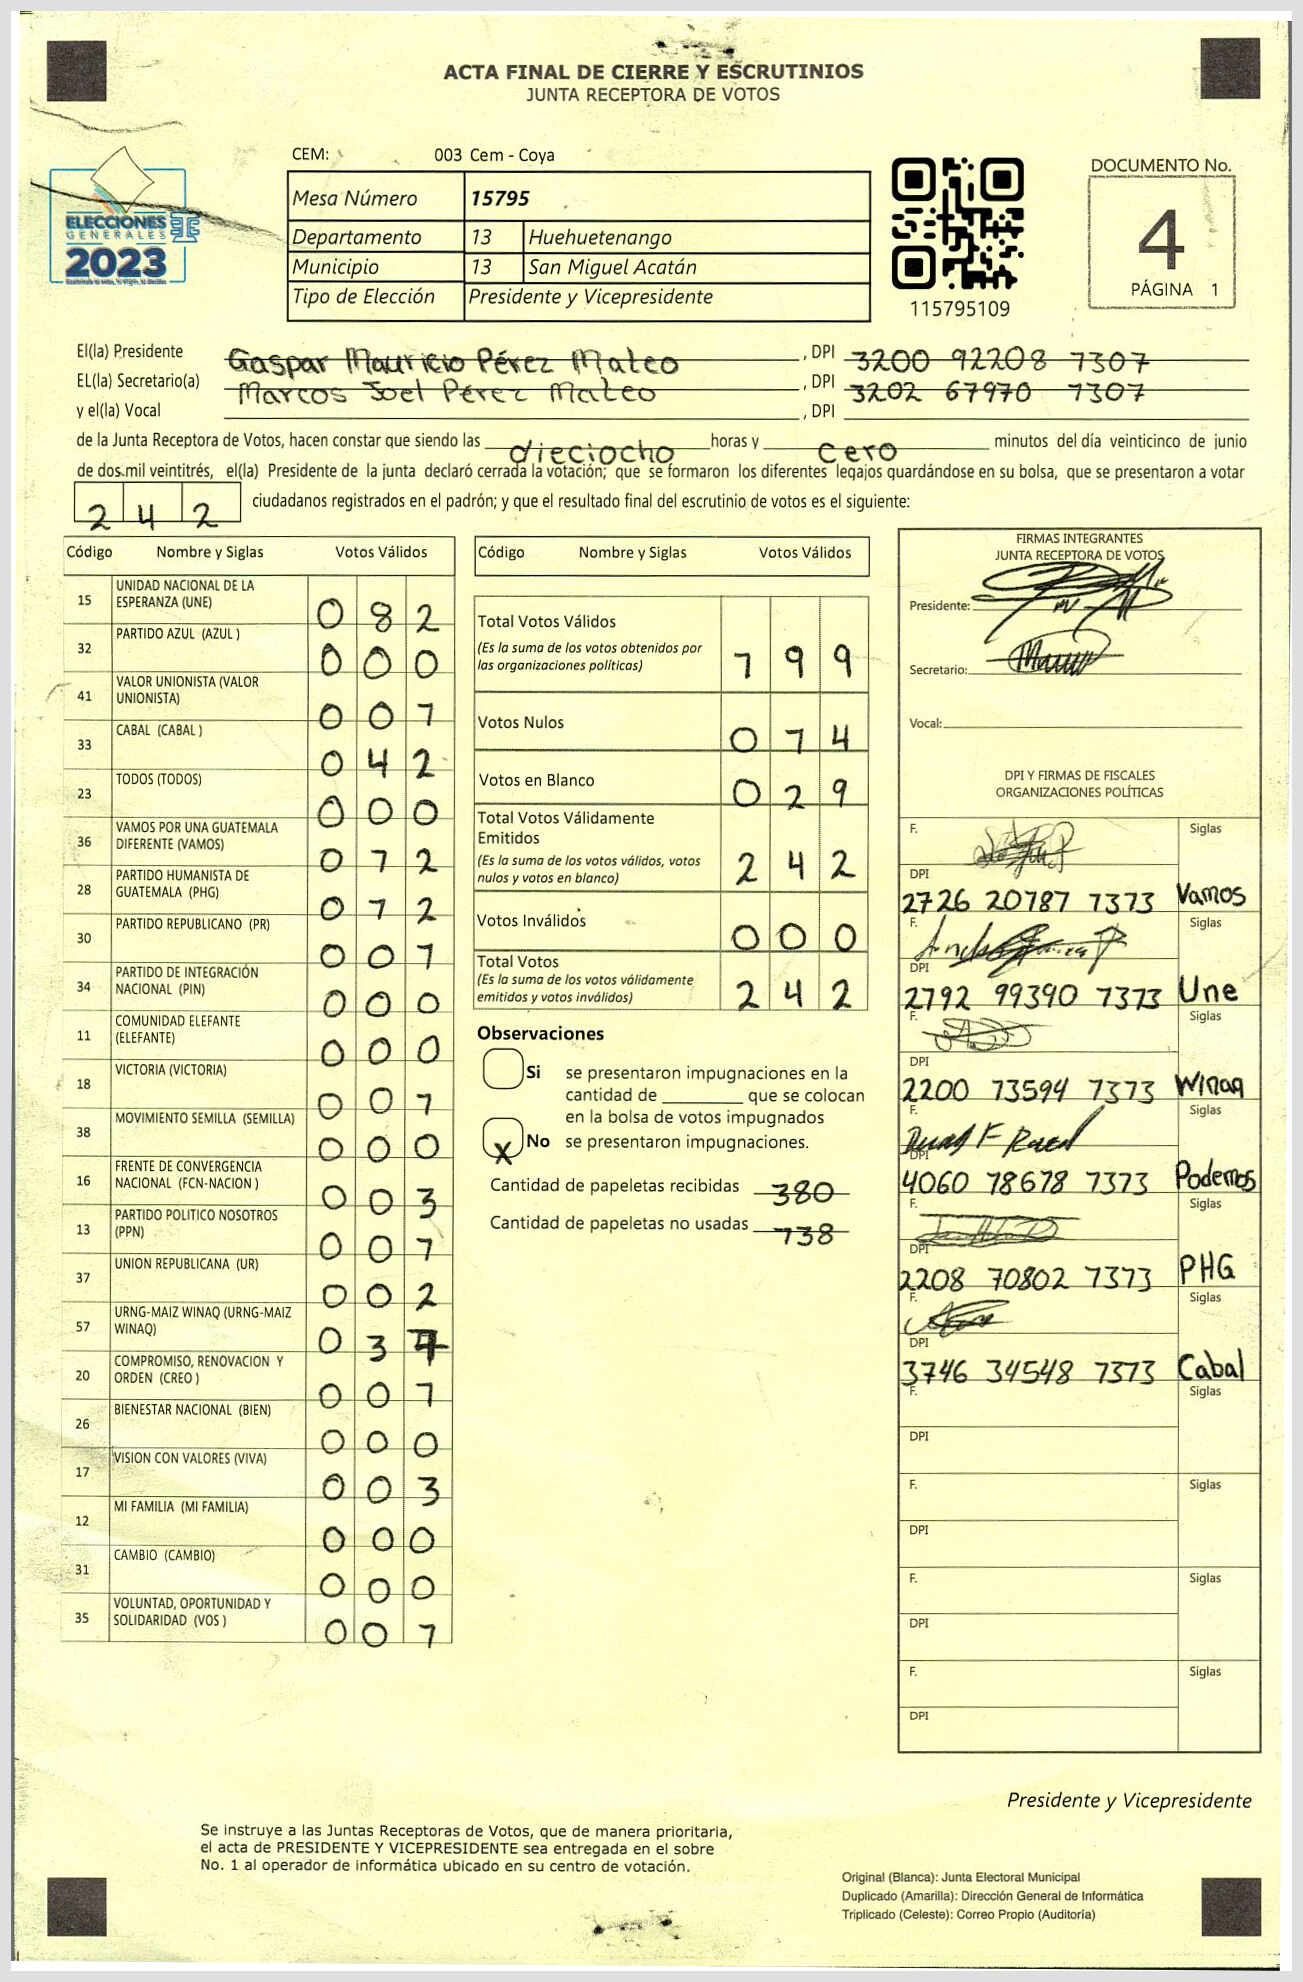 ACTA FINAL DE CIERRE Y ESCRUTINIOS
JUNTA RECEPTORA DE VOTOS
ELECCIONES
GENERALES
2023
CEM: 003 Cem - Coya
Mesa Número 15795
Departamento 13 Huehuetenango
Municipio 13 San Miguel Acatán
Tipo de Elección Presidente y Vicepresidente
115795109
DOCUMENTO No.
4
PÁGINA 1
El(la) Presidente Gaspar Mauricio Pérez Mateo , DPI 3200 92208 1307
EL(la) Secretario(a) Marcos Joel Pérez Mateo , DPI 3202 1307
y el(la) Vocal , DPI
de la Junta Receptora de Votos, hacen constar que siendo las dieciocho horas y cero minutos del día veinticinco de junio
de dos mil veintitrés, el(la) Presidente de la junta declaró cerrada la votación; que se formaron los diferentes legajos guardándose en su bolsa, que se presentaron a votar
242 ciudadanos registrados en el padrón; y que el resultado final del escrutinio de votos es el siguiente:
Código Nombre y Siglas Votos Válidos
15 UNIDAD NACIONAL DE LA ESPERANZA (UNE) 082
32 PARTIDO AZUL (AZUL ) 000
41 VALOR UNIONISTA (VALOR UNIONISTA) 001
33 CABAL (CABAL ) 042
23 TODOS (TODOS) 000
36 VAMOS POR UNA GUATEMALA DIFERENTE (VAMOS) 012
28 PARTIDO HUMANISTA DE GUATEMALA (PHG) 012
30 PARTIDO REPUBLICANO (PR) 001
34 PARTIDO DE INTEGRACIÓN NACIONAL (PIN) 000
11 COMUNIDAD ELEFANTE (ELEFANTE) 000
18 VICTORIA (VICTORIA) 001
38 MOVIMIENTO SEMILLA (SEMILLA) 000
16 FRENTE DE CONVERGENCIA NACIONAL (FCN-NACION ) 003
13 PARTIDO POLITICO NOSOTROS (PPN) 001
37 UNION REPUBLICANA (UR) 002
57 URNG-MAIZ WINAQ (URNG-MAIZ WINAQ) 037
20 COMPROMISO, RENOVACION Y ORDEN (CREO ) 001
26 BIENESTAR NACIONAL (BIEN) 000
17 VISION CON VALORES (VIVA) 003
12 MI FAMILIA (MI FAMILIA) 000
31 CAMBIO (CAMBIO) 000
35 VOLUNTAD, OPORTUNIDAD Y SOLIDARIDAD (VOS ) 001
Código Nombre y Siglas Votos Válidos
Total Votos Válidos
(Es la suma de los votos obtenidos por
las organizaciones políticas) 199
Votos Nulos 014
Votos en Blanco 029
Total Votos Válidamente
Emitidos
(Es la suma de los votos válidos, votos
nulos y votos en blanco) 242
Votos Inválidos 000
Total Votos
(Es la suma de los votos válidamente
emitidos y votos inválidos) 242
Observaciones
Si se presentaron impugnaciones en la
cantidad de ________ que se colocan
en la bolsa de votos impugnados
X No se presentaron impugnaciones.
Cantidad de papeletas recibidas 380
Cantidad de papeletas no usadas 138
FIRMAS INTEGRANTES
JUNTA RECEPTORA DE VOTOS
Presidente:
Secretario:
Vocal:
DPI Y FIRMAS DE FISCALES
ORGANIZACIONES POLÍTICAS
F. Siglas
DPI
1313 Vamos
F. Siglas
DPI
99390 1313 Une
F. Siglas
DPI
2200 13594 1313 Winaq
F. Siglas
DPI
4060 1313 Podemos
F. Siglas
DPI
2208 1313 PHG
F. Siglas
DPI
34548 1313 Cabal
F. Siglas
DPI
F. Siglas
DPI
F. Siglas
DPI
F. Siglas
DPI
Presidente y Vicepresidente
Se instruye a las Juntas Receptoras de Votos, que de manera prioritaria,
el acta de PRESIDENTE Y VICEPRESIDENTE sea entregada en el sobre
No. 1 al operador de informática ubicado en su centro de votación.
Original (Blanca): Junta Electoral Municipal
Duplicado (Amarilla): Dirección General de Informática
Triplicado (Celeste): Correo Propio (Auditoría)